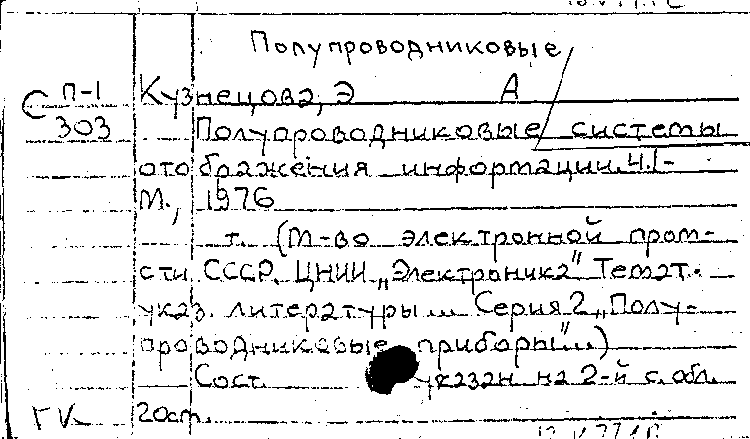 Полупроводниковые
С П-1
303
Кузнецова, Э А
Полупроводниковые системы
отображения информации. Ч.1-
М., 1976
т. (М-во электронной пром-
сти СССР. ЦНИИ „Электроника" Темат.
указ. литературы... Серия 2 „Полу-
проводниковые приборы"...)
Сост. указан на 2-й с. обл.